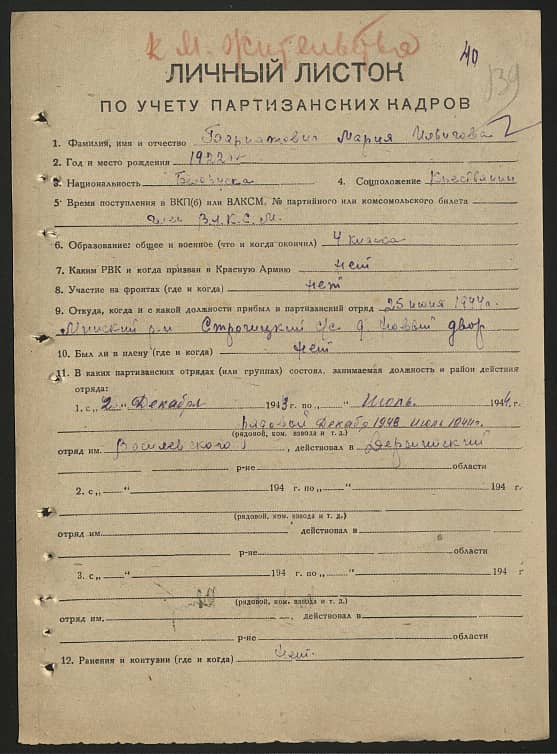 к м. жительства
40
139
ЛИЧНЫЙ ЛИСТОК
ПО УЧЕТУ ПАРТИЗАНСКИХ КАДРОВ
1. Фамилия, имя и отчество Мария
2. Год и место рождения 1922 г.
3. Национальность 4. Соцположение
5. Время поступления в ВКП(б) или ВЛКСМ, № партийного или комсомольского билета
В.Л.К.С.М.
6. Образование: общее и военное (что и когда окончил) 4 класса
7. Каким РВК и когда призван в Красную Армию нет
8. Участие на фронтах (где и когда) нет
9. Откуда, когда и с какой должности прибыл в партизанский отряд 25 1944г.
Минский р-н Строчицкий с/с д. Новый двор
10. Был ли в плену (где и когда) нет
11. В каких партизанских отрядах (или группах) состоял, занимаемая должность и район действия
отряда:
1. с „2“ Декабря 1943 г. по „ “ Июль 1944 г.
рядовой Декабр 1943 июль 1944г.
(рядовой, ком. взвода и т. д.)
отряд им. действовал в
р-не области
2. с „ “ 194 г. по „ “ 194 г.
(рядовой, ком. взвода и т. д.)
отряд им. действовал в
р-не области
3. с „ “ 194 г. по „ “ 194 г
(рядовой, ком. взвода и т. д.)
отряд им. , действовал в
р-не области
12. Ранения и контузии (где и когда) нет.